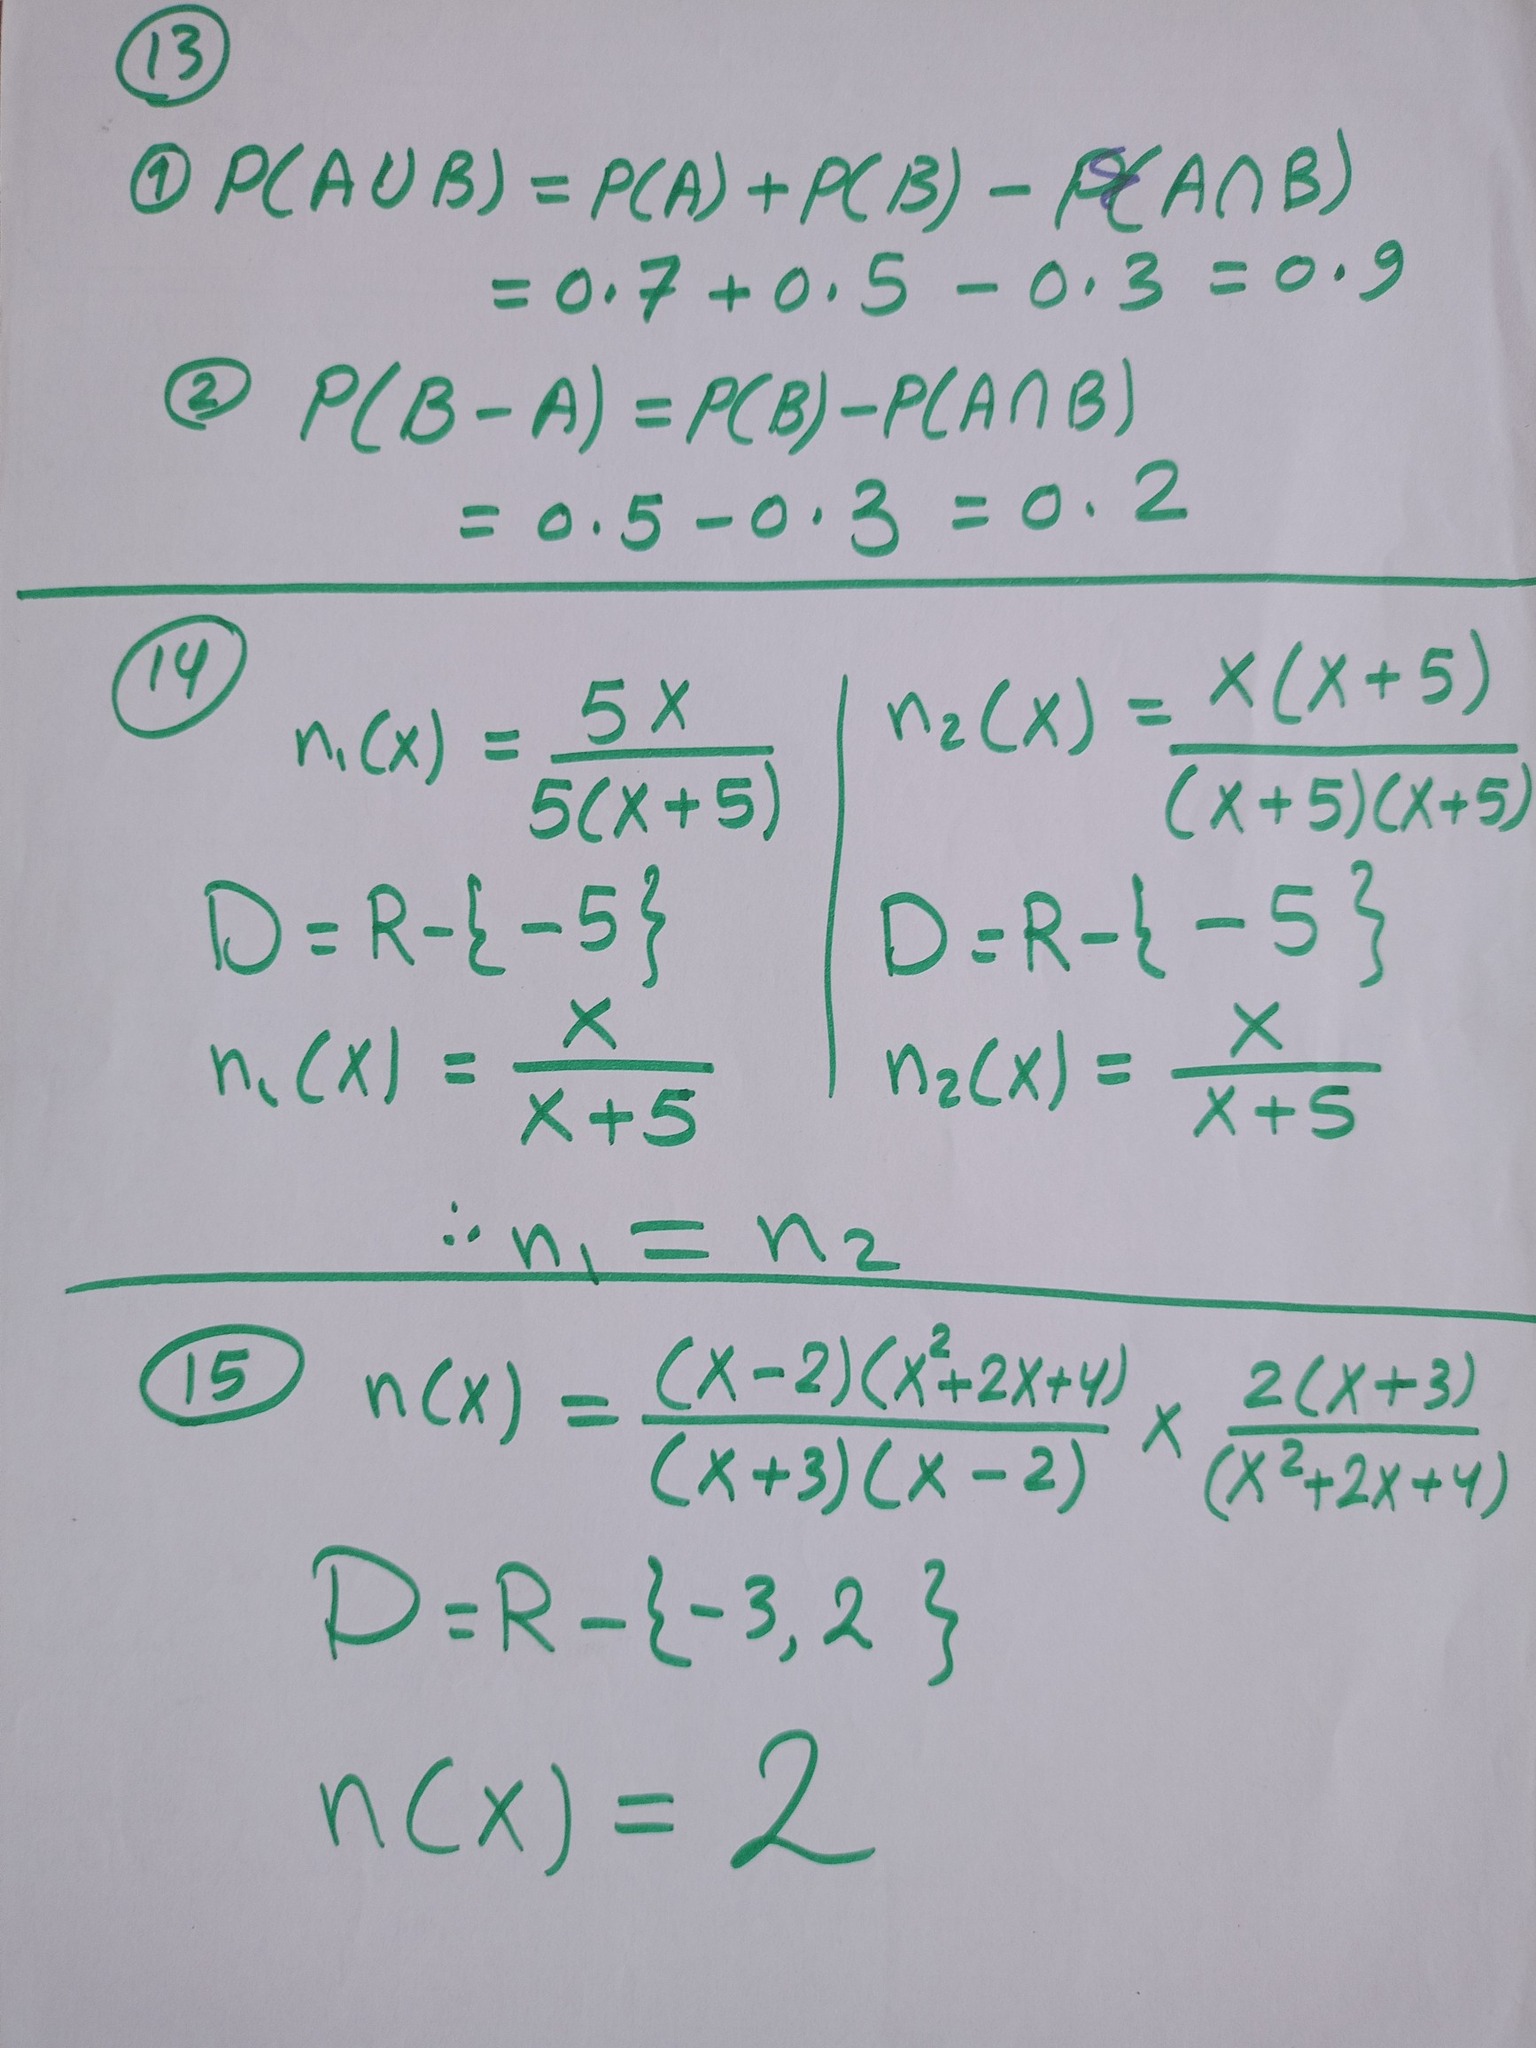 13
① P(A∪B) = P(A) + P(B) - P(A∩B)
= 0.7 + 0.5 - 0.3 = 0.9
② P(B - A) = P(B) - P(A∩B)
= 0.5 - 0.3 = 0.2
14
n₁(x) = 5x / 5(x+5)
D = R - { -5 }
n₁(x) = x / x+5
n₂(x) = x(x+5) / (x+5)(x+5)
D = R - { -5 }
n₂(x) = x / x+5
∴ n₁ = n₂
15 n(x) = (x-2)(x²+2x+4) / (x+3)(x-2) × 2(x+3) / (x²+2x+4)
D = R - { -3, 2 }
n(x) = 2